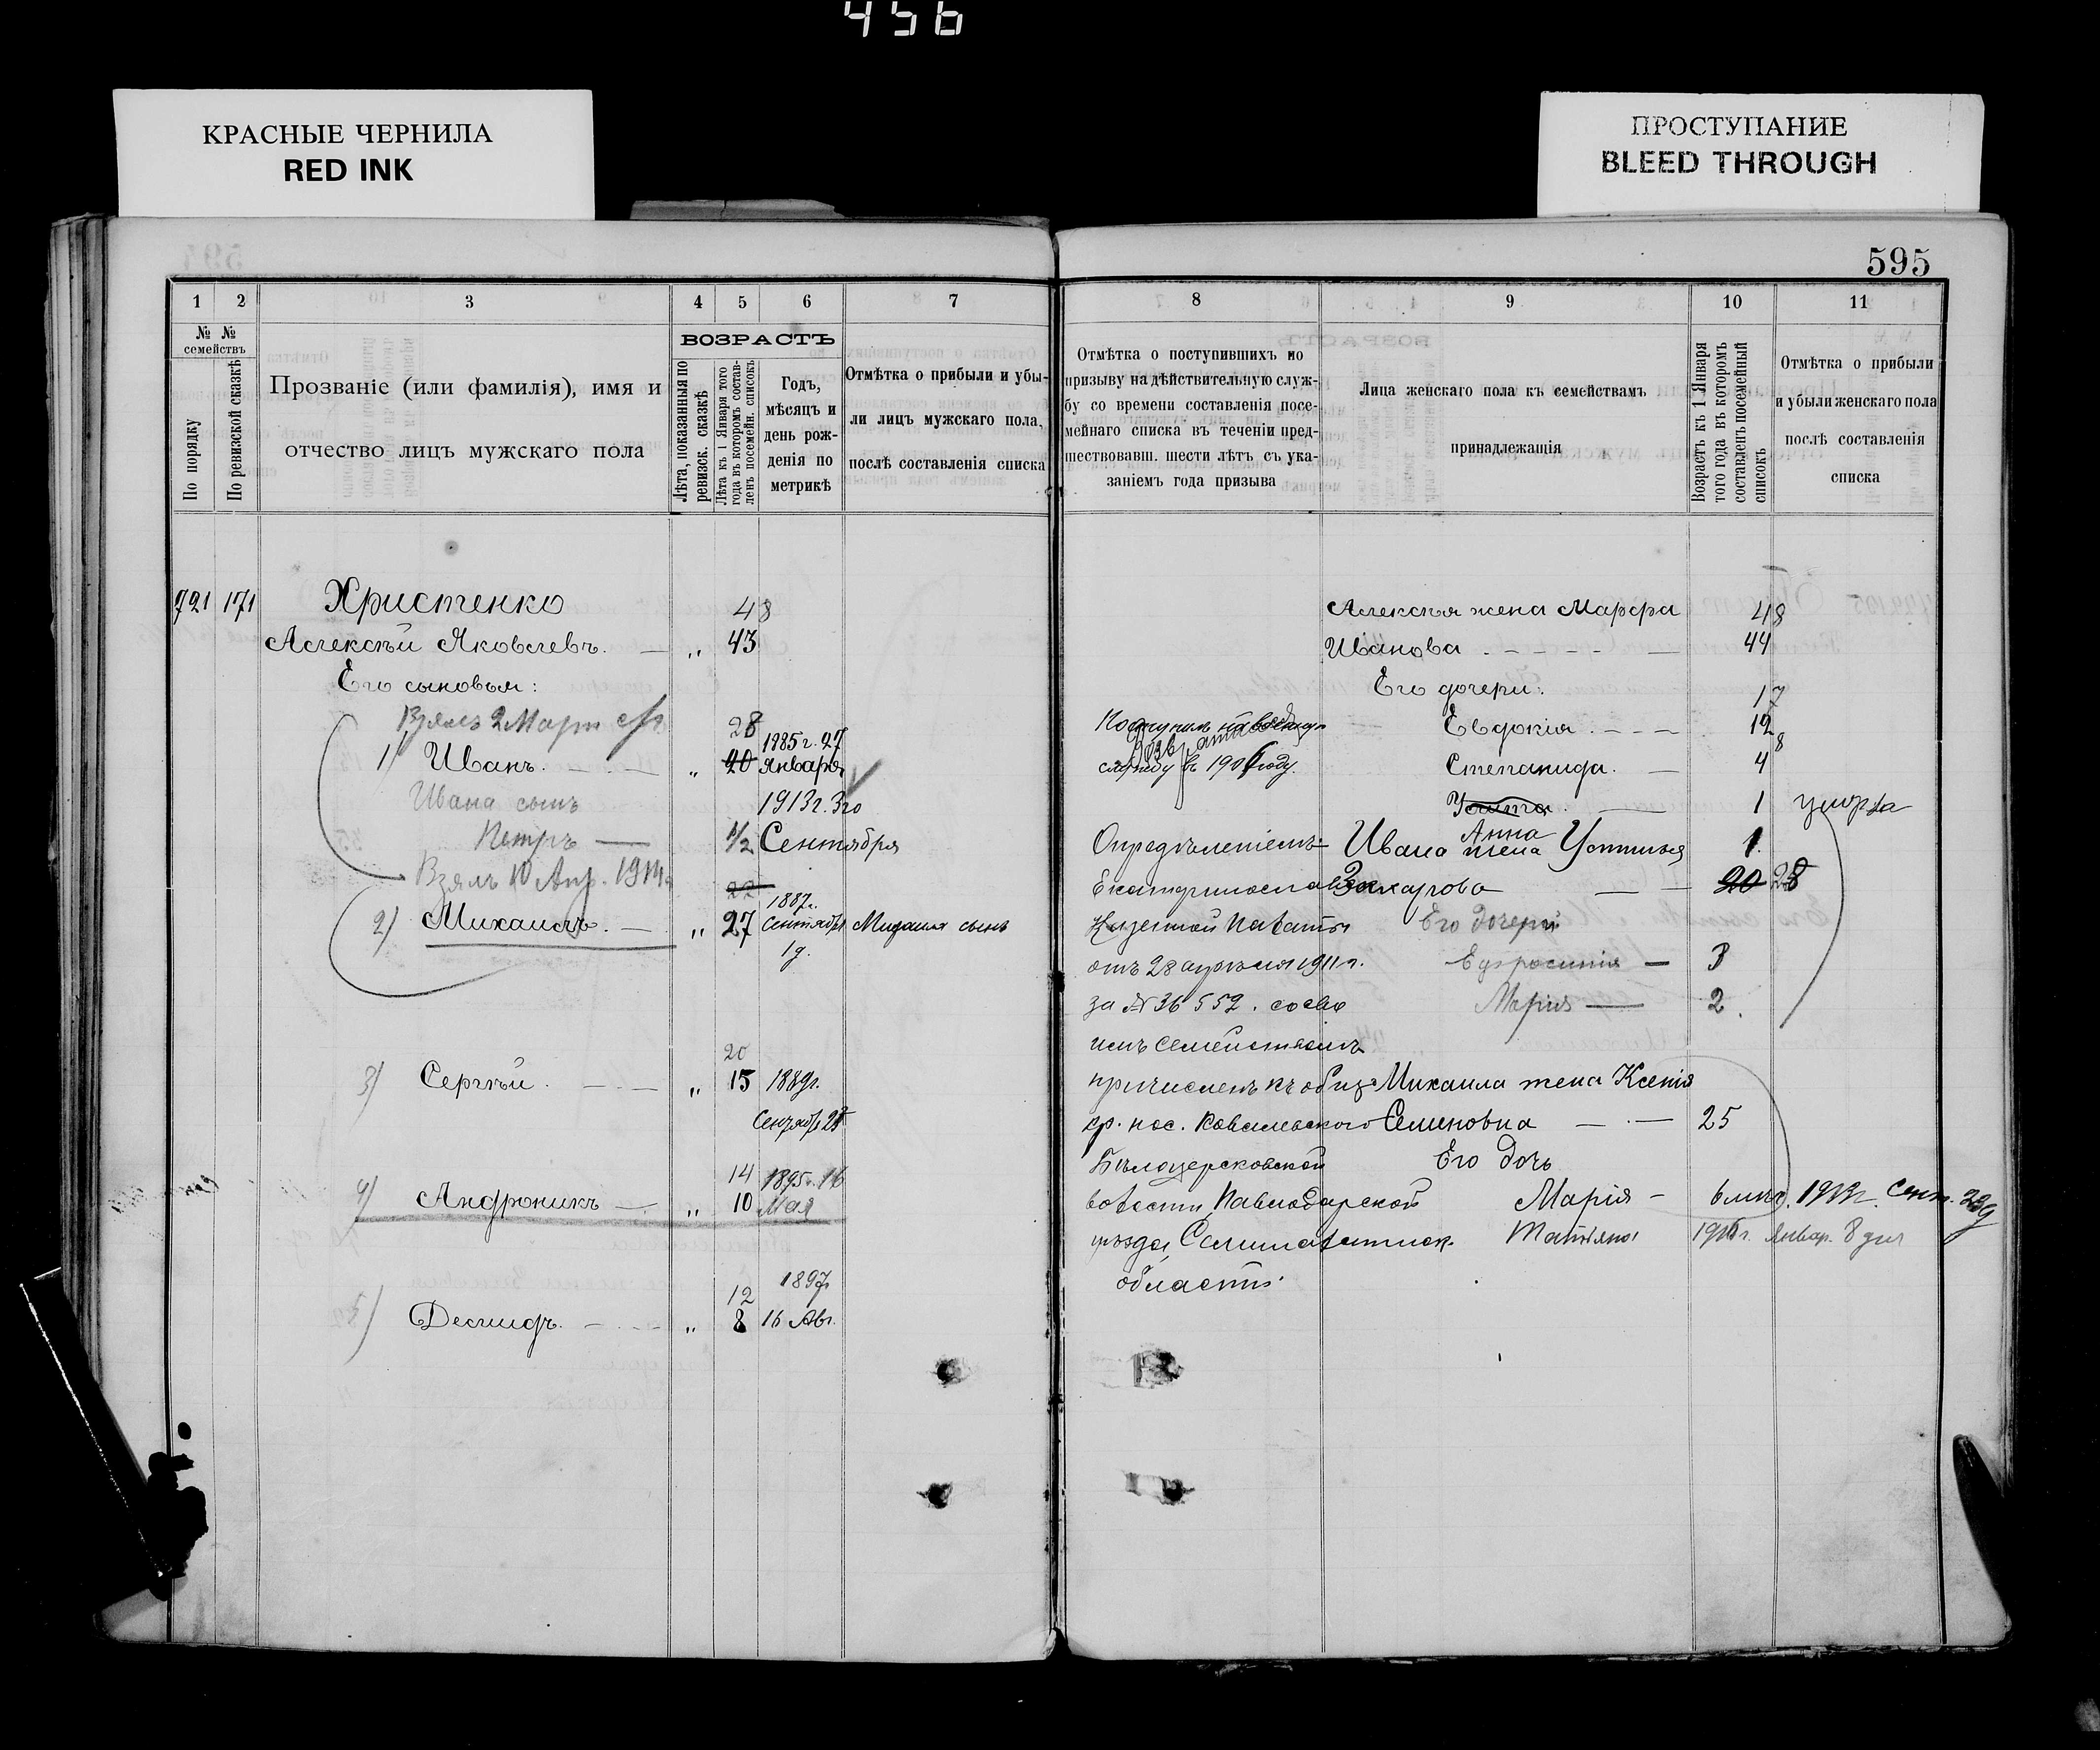 456
КРАСНЫЕ ЧЕРНИЛА
RED INK
ПРОСТУПАНИЕ
BLEED THROUGH
595
1 2 3 4 5 6 7
№ № семействъ
По порядку
По ревизской сказкѣ
Прозваніе (или фамилія), имя и
отчество лицъ мужскаго пола
ВОЗРАСТЪ
Лѣта, показанныя по
ревизск. сказкѣ
Лѣта къ 1 Января того
года въ которомъ состав-
ленъ посемейн. списокъ
Годъ,
мѣсяцъ и
день рож-
денія по
метрикѣ
Отмѣтка о прибыли и убы-
ли лицъ мужскаго пола,
послѣ составленія списка
8 9 10 11
Отмѣтка о поступившихъ по
призыву на дѣйствительную служ-
бу со времени составленія посе-
мейнаго списка въ теченіи пред-
шествовавш. шести лѣтъ съ ука-
заніемъ года призыва
Лица женскаго пола къ семействамъ
принадлежащія
Возрастъ къ 1 Января
того года въ которомъ
составленъ посемейный
списокъ
Отмѣтка о прибыли
и убыли женскаго пола
послѣ составленія
списка
721 171 Христенко 48
Алексѣй Яковлевъ. — „ 43
Его сыновья:
Взялъ 2 Март
28
1885 г. 27
1) Иванъ. — „ 20 Января
Ивана сынъ 1913 г. 3го
Петръ — 1/2 Сентября
Взялъ 10 Апр. 1914
22
1887 г.
2) Михаилъ. — „ 27 Сентября Михаила сынъ
1 д.
20
3) Сергѣй. — „ 15 1889 г.
Сентяб. 28
14 1895 г. 16
4) Андроникъ — „ 10 Мая
1897
12
5) Леонидъ. — „ 8 16 Авг.
Поступилъ на
службу въ 190 году.
Опредѣленіемъ
Екатеринослав
Казенной Палаты
отъ 28 апрѣля 1911 г.
за № 36552. со сво
имъ семействомъ
причисленъ къ общ
кр. пос. Ковалевского
Бѣлоцерковской
волости, Павлодарской
уѣзда, Семипалатинск.
области.
Алексѣя жена Марфа 48
Иванова — 44
Его дочери: 17
Евдокія. — 12
8
Степанида. — 4
1 умерла
Анна 1.
Ивана жена Устинья
Захарова — 20 28
Его дочери
Ефросинія — 3
Марія — 2.
Михаила жена Ксенія
Семеновна — 25
Его дочь
Марія — 6 мѣс. Сент.
Татьяна Январ. 8 дня